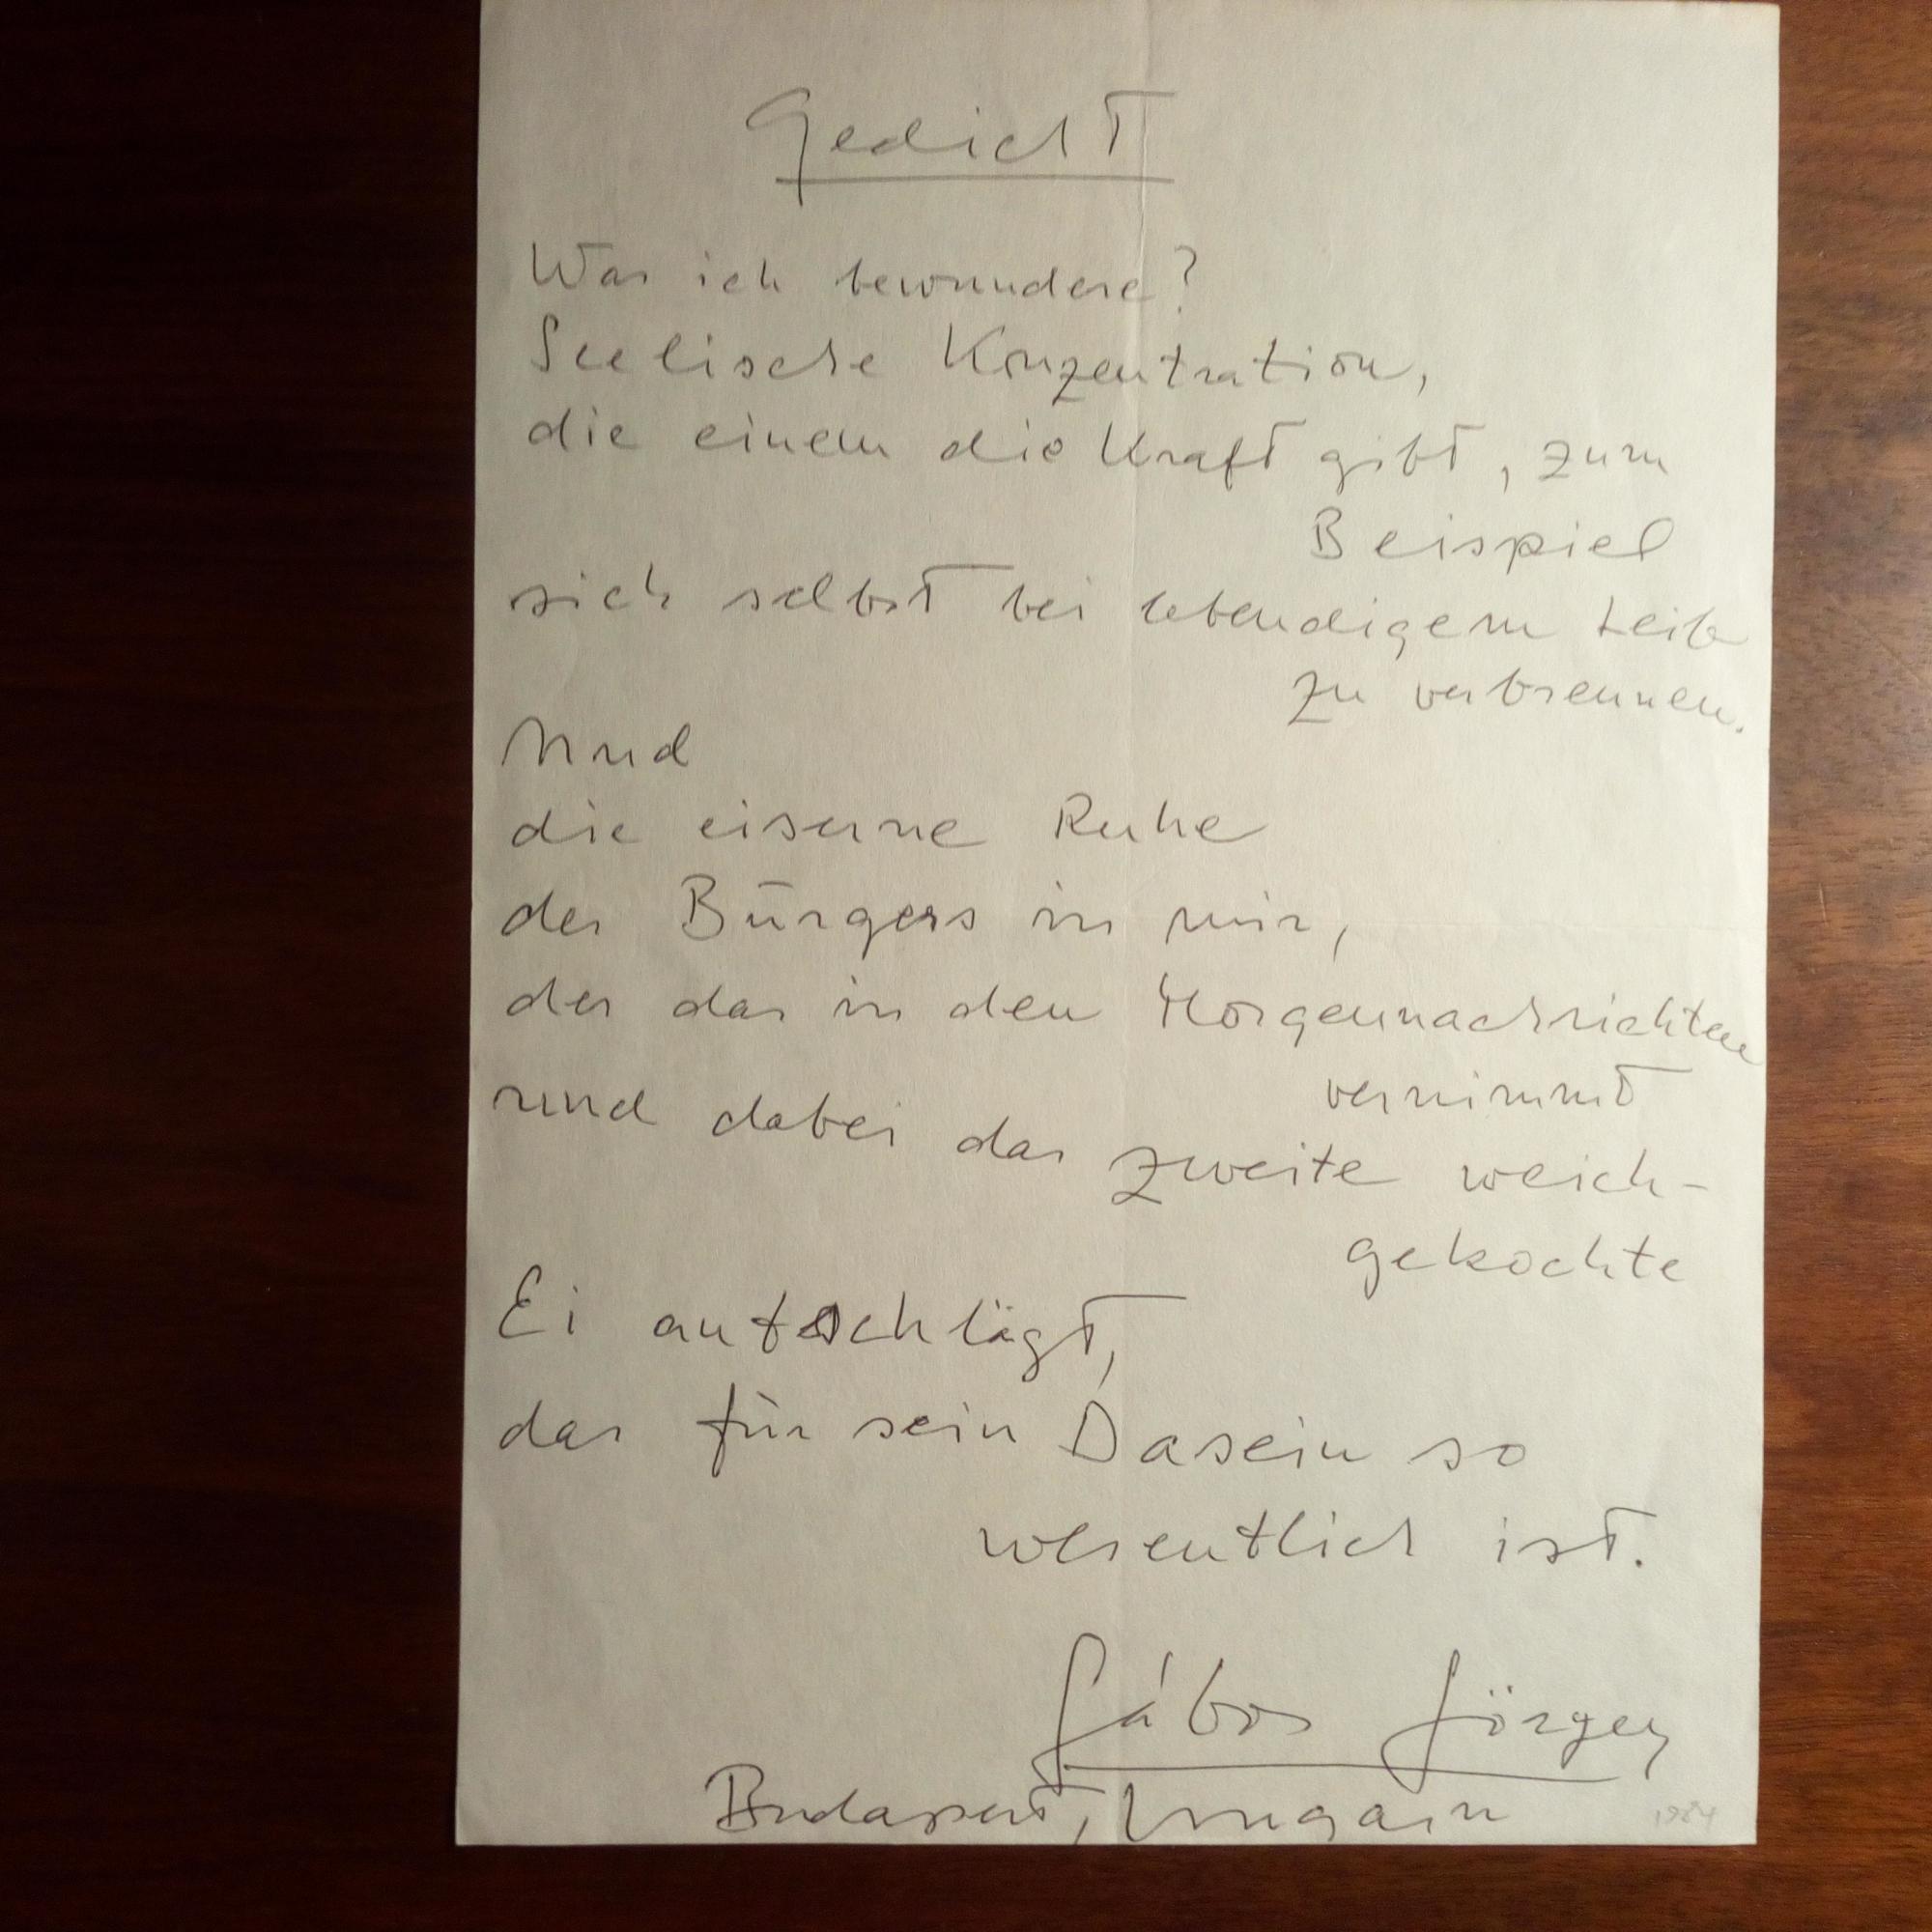 Gedicht
Was ich bewundere?
Seelische Konzentration,
die einem die Kraft gibt, zum
Beispiel
sich selbst bei lebendigem Leib
zu verbrennen.
Und
die eiserne Ruhe
des Bürgers in mir,
der das in den Morgennachrichten
vernimmt
und dabei das zweite weich-
gekochte
Ei aufschlägt,
das für sein Dasein so
wesentlich ist.
Gábor Görgey
Budapest, Ungarn
1984